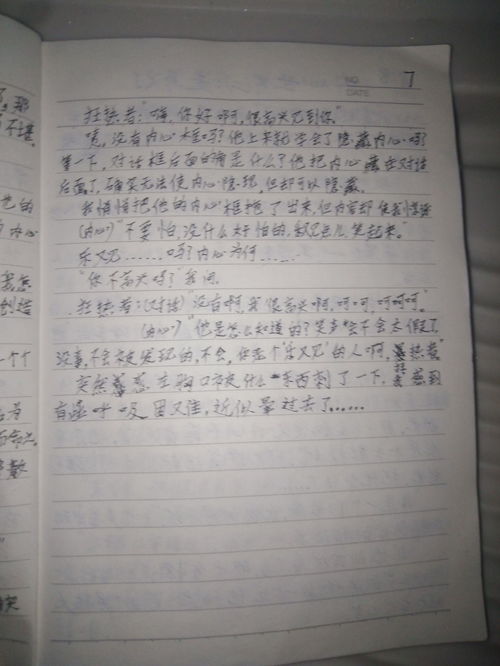 了。那
不堪。
NO.
DATE
7
狂热者:"嗨,你好啊,很高兴见到你"
咦,没有内心框吗?他上来就学会了隐藏内心吗?
等一下,对话框后面白的是什么?他把内心藏在对话
后面了,确实无法使内心隐现,但却可以隐藏。
我悄悄把他的内心框拖了出来,但内容却使我惊讶
(内心)"不要怕,没什么好怕的,就这儿,笑起来。"
乐又见……吗?内心为何……
"你不高兴吗?"我问。
狂热者:(对话)"没有啊,我很高兴啊,呵呵,呵呵呵"
(内心)"他是怎么知道的?笑声会不会太假了,
没事,不会被发现的,不会,但是个'乐又见'的人啊,狂热者"
突然 左胸口被什么东西刺了一下,感到
有呼吸困又难,近似晕过去了……
色的
内心
我怎
创造
一个个